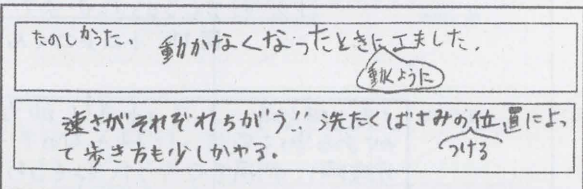 たのしかった、 動かなくなったときに工夫した。
動くように
速さがそれぞれちがう!! 洗たくばさみの位置によっ
つける
て歩き方も少しかわる。